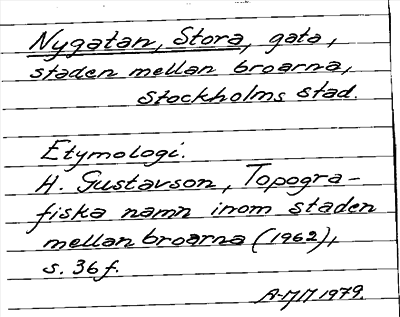 Nygatan, Stora, gata,
staden mellan broarna,
Stockholms stad.
Etymologi.
H. Gustavson, Topogra-
fiska namn inom staden
mellan broarna (1962),
s. 36 f.
A-MM 1979.